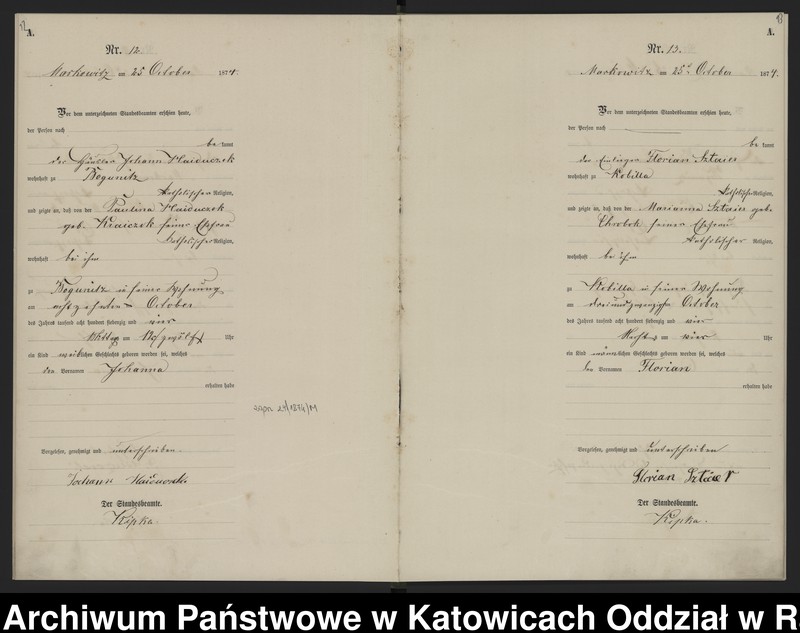 12
A.
Nr. 12.
Markowitz am 25 October 1874.
Vor dem unterzeichneten Standesbeamten erschien heute,
der Person nach
be kannt
der Häusler Johann
wohnhaft zu Bogunitz
katholischer Religion,
und zeigte an, daß von der Paulina
geb. Kraiczek seiner Ehefrau
katholischer Religion,
wohnhaft bei ihm
zu Bogunitz in seiner Wohnung
am achtzehnten October
des Jahres tausend acht hundert siebenzig und vier
Mittag um zwölf Uhr
ein Kind weiblichen Geschlechts geboren worden sei, welches
den Vornamen Johanna
erhalten habe
zapn 21/1874/M
Vorgelesen, genehmigt und unterschrieben
Johann
Der Standesbeamte.
Kipka.
13
A.
Nr. 13.
Markowitz am 25t October 1874.
Vor dem unterzeichneten Standesbeamten erschien heute,
der Person nach
be kannt
der Einlieger Florian
wohnhaft zu Kobilla
katholischer Religion,
und zeigte an, daß von der Marianna geb.
Chrobok seiner Ehefrau
katholischer Religion,
wohnhaft bei ihm
zu Kobilla in seiner Wohnung
am dreiundzwanzigsten October
des Jahres tausend acht hundert siebenzig und vier
Nachts um vier Uhr
ein Kind männlichen Geschlechts geboren worden sei, welches
den Vornamen Florian
erhalten habe
Vorgelesen, genehmigt und unterschrieben
Florian
Der Standesbeamte.
Kipka.
Archiwum Państwowe w Katowicach Oddział w Ra